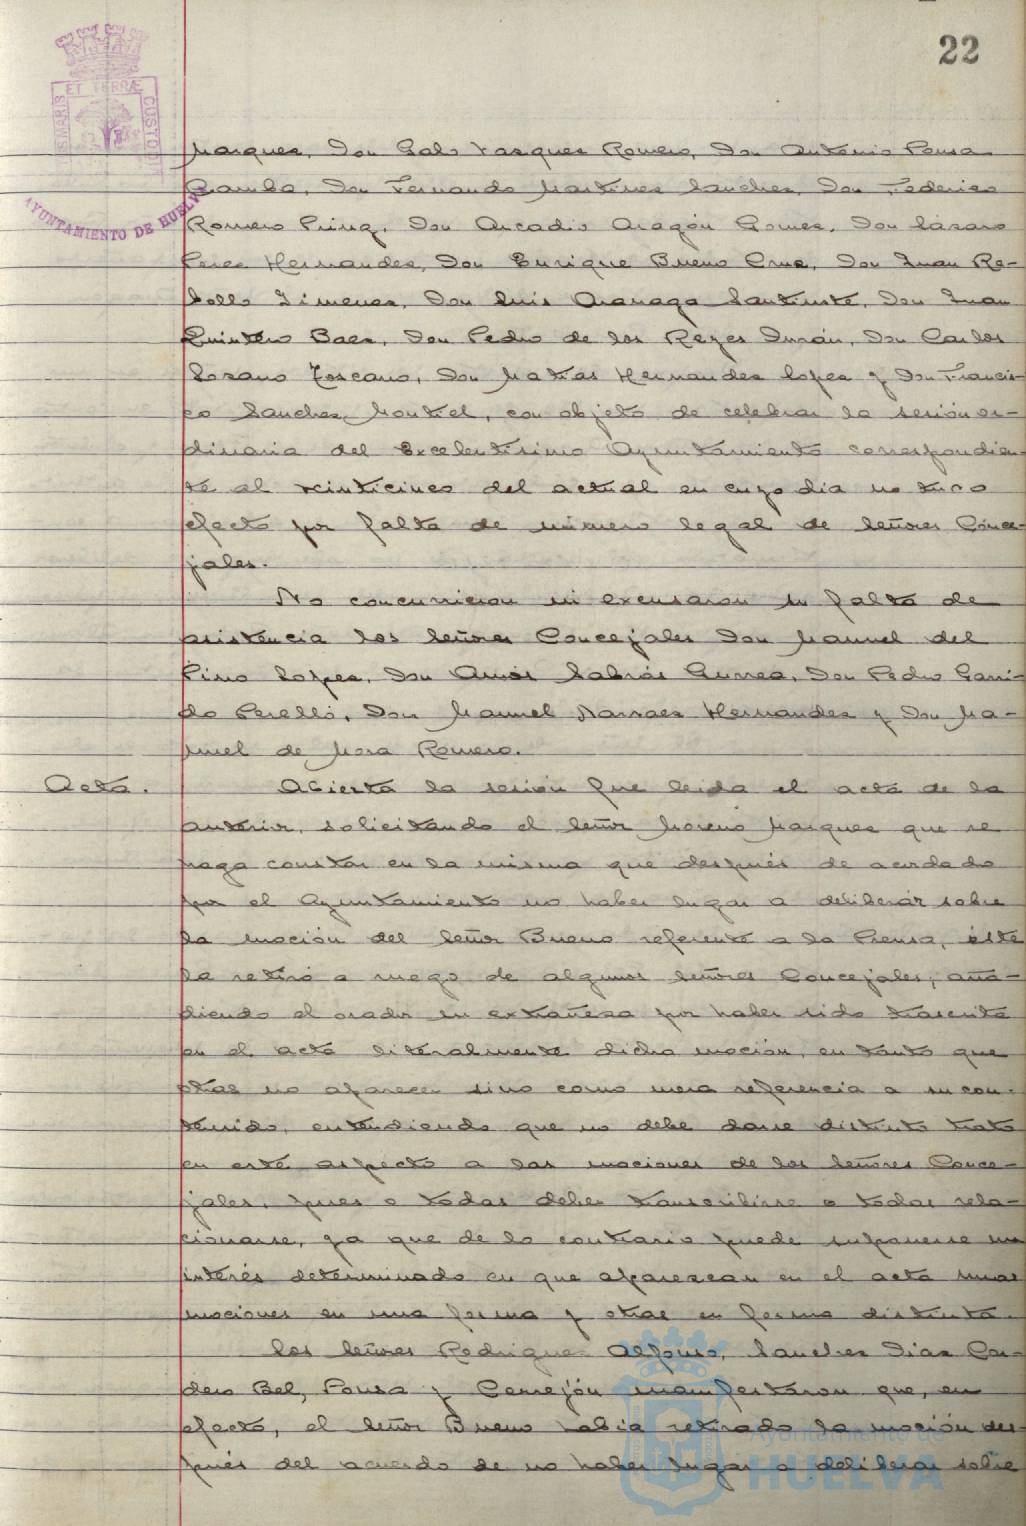 22
PORTUS MARIS ET TERRÆ CUSTODIA
AYUNTAMIENTO DE HUELVA
Marquez, Don Galo Vazquez Romero, Don Antonio Pousa
Camba, Don Fernando Martinez Sanchez, Don Federico
Romero Pring, Don Arcadio Aragón Gomez, Don Lázaro
Perez Hernandez, Don Enrique Bueno Cruz, Don Juan Re-
bollo Jimenez, Don Luis Don Juan
Quintero Baez, Don Pedro de los Reyes Durán, Don Carlos
Lozano Toscano, Don Matias Hernandez Lopez y Don Francis-
co Sanchez Montiel, con objeto de celebrar la sesión or-
dinaria del Excelentisimo Ayuntamiento correspondien-
te al veinticinco del actual en cuyo dia no tuvo
efecto por falta de número legal de Señores Conce-
jales.
No concurrieron ni excusaron su falta de
asistencia los Señores Concejales Don Manuel del
Pino Lopez, Don Amós Sabrás Gurrea, Don Pedro Garri-
do Perelló, Don Manuel Narvaez Hernandez y Don Ma-
nuel de Mora Romero.
Acta. Abierta la sesión fue leida el acta de la
anterior, solicitando el Señor Moreno Marquez que se
haga constar en la misma que después de acordado
por el Ayuntamiento no haber lugar a deliberar sobre
la moción del Señor Bueno referente a la Prensa, éste
la retiró a ruego de algunos Señores Concejales; aña-
diendo el orador su extrañeza por haber sido trascrita
en el acta literalmente dicha moción, en tanto que
otras no aparecen sino como mera referencia a su con-
tenido, entendiendo que no debe darse distinto trato
en este aspecto a las mociones de los Señores Conce-
jales, pues o todas deben transcribirse o todas rela-
cionarse, ya que de lo contrario puede suponerse un
interés determinado en que aparezcan en el acta unas
mociones en una forma y otras en forma distinta.
Los Señores Rodriguez Alfonso, Sanchez Diaz, Cor-
dero Bel, Pousa y Cerrejón manifestaron que, en
efecto, el Señor Bueno habia retirado la moción des-
pués del acuerdo de no haber lugar a deliberar sobre
Ayuntamiento de
HUELVA